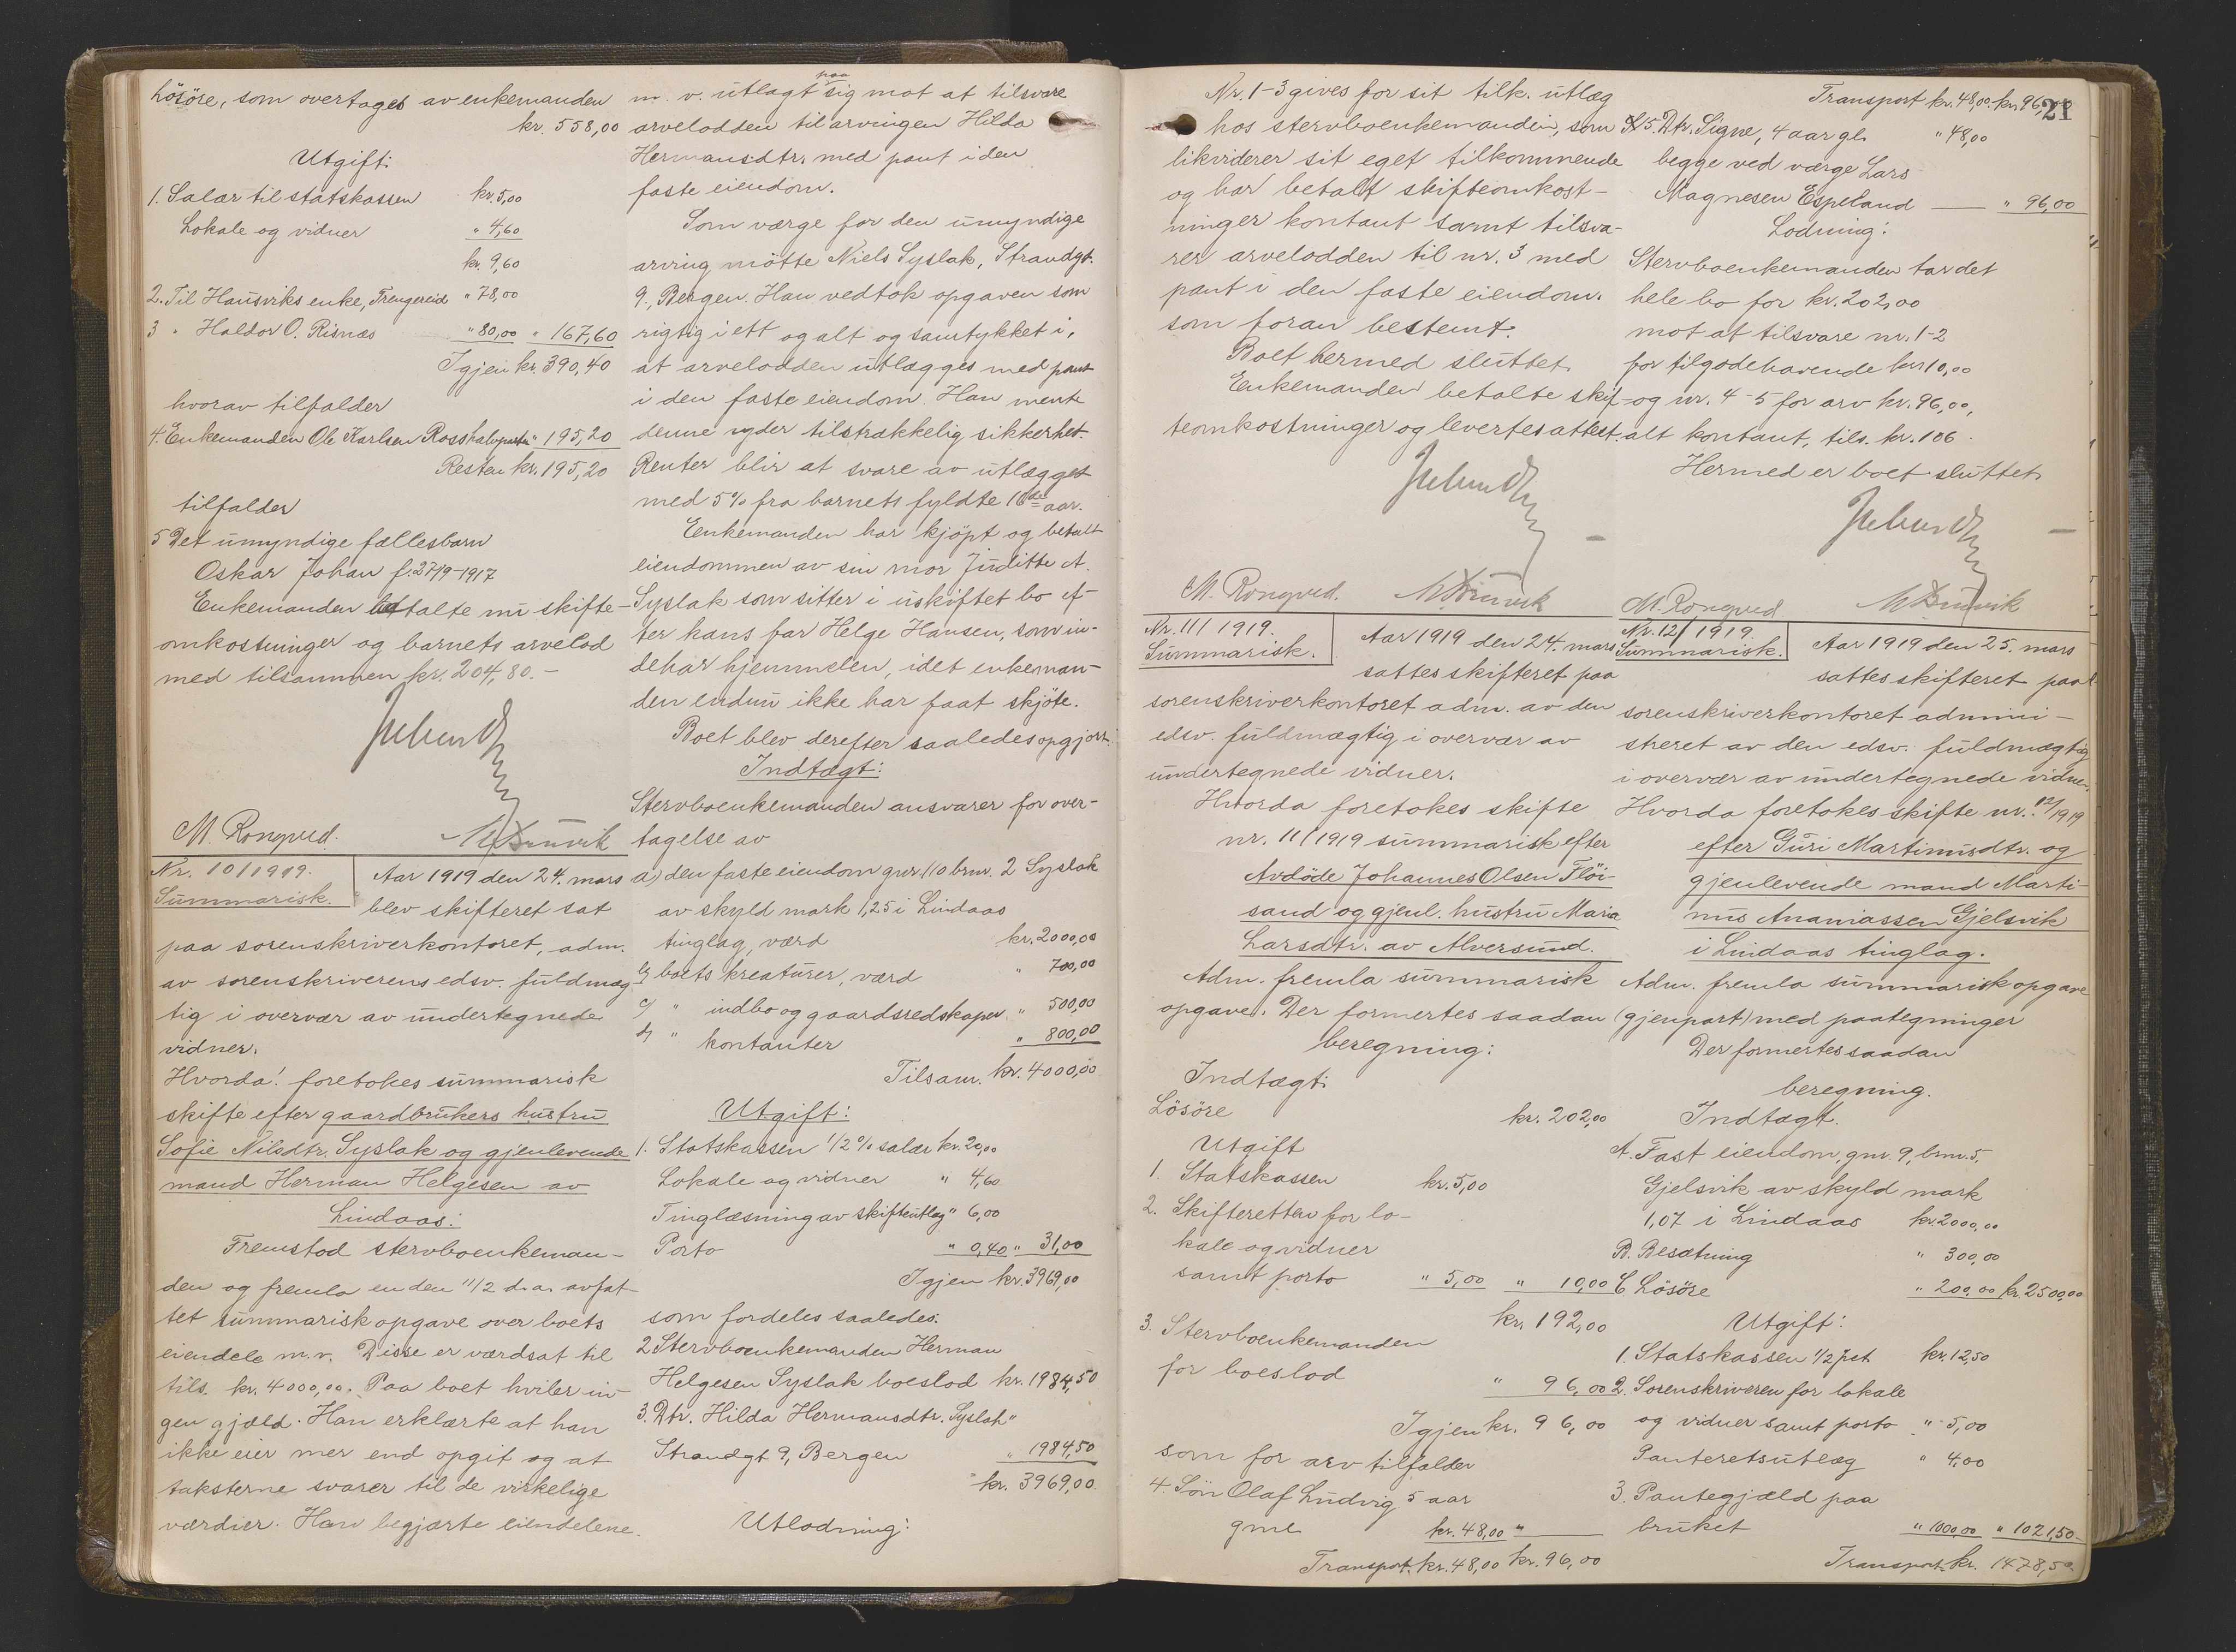 Lösöre, som overtages av enkemanden
kr. 558,00
Utgift:
1. Salær til statskassen kr. 5,00
Lokale og vidner " 4,60
kr. 9,60
2. Til Hausviks enke, Trengereid " 78,00
3 " Haldor O. Risnæs " 80,00 " 167,60
Igjen kr. 390,40
hvorav tilfalder
4. Enkemanden Ole Karlsen Ross halvparten " 195,20
Resten kr. 195,20
tilfalder
5 Det umyndige fællesbarn
Oskar Johan f. 27/9-1917
Enkemanden betalte nu skifte-
omkostninger og barnets arvelod
med tilsammen kr. 204,80.-
M. Rongved.
Nr. 10/1919.
Summarisk.
Aar 1919 den 24. mars
blev skifteret sat
paa sorenskriverkontoret, adm.
av sorenskriverens edsv. fuldmæg-
tig i overvær av undertegnede
vidner.
Hvorda! foretokes summarisk
skifte efter gaardbrukers hustru
Sofie Nilsdtr. Syslak og gjenlevende
mand Herman Helgesen av
Lindaas:
Fremstod stervboenkeman-
den og fremla en den 11/2 d.a. avfat-
tet summarisk opgave over boets
eiendele m.v. Disse er værdsat til
tils. kr. 4000,00. Paa boet hviler in-
gen gjæld. Han erklærte at han
ikke eier mer end opgit og at
taksterne svarer til de virkelige
værdier. Han begjærte eiendelene
m. v. utlagt paa sig mot at tilsvare
arvelodden til arvingen Hilda
Hermansdtr. med pant i den
faste eiendom.
Som værge for den umyndige
arving mötte Niels Syslak, Strandgt.
9, Bergen. Han vedtok opgaven som
rigtig i ett og alt og samtykket i,
at arvelodden utlægges med pant
i den faste eiendom. Han mente
denne yder tilstrækkelig sikkerhet.
Renter blir at svare av utlægget
med 5% fra barnets fyldte 16de aar.
Eenkemanden har kjöpt og betalt
eiendommen av sin mor Juditte A.
Syslak som sitter i uskiftet bo ef-
ter hans far Helge Hansen, som in-
dehar hjemmelen, idet enkeman-
den endnu ikke har faat skjöte.
Boet blev derefter saaledes opgjort:
Indtægt:
Stervboenkemanden ansvarer for over-
tagelse av
a) den faste eiendom gnr. 110 brnr. 2 Syslak
av skyld mark 1,25 i Lindaas
tinglag, værd kr. 2000,00
b) boets kreaturer, værd " 700,00
c) " indbo og gaardsredskaper " 500,00
d) " kontanter " 800,00
Tilsam. kr. 4000,00
Utgift:
1. Statskassen 1/2% salær kr. 20,00
Lokale og vidner " 4,60
Tinglæsning av skifteutlæg " 6,00
Porto " 0,40 " 31,00
Igjen kr. 3969,00
som fordeles saaledes:
2 Stervboenkemanden Herman
Helgesen Syslak boeslod kr. 1984,50
3. Dtr. Hilda Hermansdtr. Syslak "
Strandgt 9, Bergen " 1984,50
kr. 3969,00.
Utlodning:
21
Nr. 1-3 gives for sit tilk. utlæg
hos stervboenkemanden, som
likviderer sit eget tilkommende
og har betalt skifteomkost-
ninger kontant samt tilsva-
rer arvelodden til nr. 3 med
pant i den faste eiendom.
som foran bestemt.
Boet hermed sluttet.
Enkemanden betalte skif-
teomkostninger og levertes attest.
M. Rongved.
Nr. 11/1919.
Summarisk.
Aar 1919 den 24. mars
sattes skifteret paa
sorenskriverkontoret adm. av den
edsv. fuldmægtig i overvær av
undertegnede vidner.
Hvorda foretokes skifte
nr. 11/1919 summarisk efter
Avdöde Johannes Olsen Flöi-
sand og gjenl. hustru Maria
Larsdtr. av Alversund.
Adm. fremla summarisk
opgave. Der formertes saadan
beregning:
Indtægt:
Lösöre kr. 202,00
Utgift
1. Statskassen kr. 5,00
2. Skifteretten for lo-
kale og vidner
samt porto " 5,00 " 10,00
kr. 192,00
3. Stervboenkemanden
for boeslod " 96,00
Igjen kr. 96,00
som for arv tilfalder
4. Sön Olaf Ludvig 5 aar
gml. kr. 48,00 "
Transport. kr. 48,00 kr. 96,00
Transport kr. 48,00. kr. 96,00
5. Dtr. Signe, 4 aar gl. " 48,00
begge ved værge Lars
Magnesen Espeland " 96,00
Lodning:
Stervboenkemanden tar det
hele bo for kr. 202,00
mot at tilsvare nr. 1-2
for tilgodehavende kr. 10,00
og nr. 4-5 for arv kr. 96,00,
alt kontant, tils. kr. 106.
Hermed er boet sluttet.
M. Rongved
Nr. 12/1919.
Summarisk.
Aar 1919 den 25. mars
sattes skifteret paa
sorenskriverkontoret admini-
streret av den edsv. fuldmægtig
i overvær av undertegnede vidner.
Hvorda foretokes skifte nr. 12/1919
efter Guri Martinusdtr. og
gjenlevende mand Marti-
nus Ananiassen Gjelsvik
i Lindaas tinglag.
Adm. fremla summarisk opgave
(gjenpart) med paategninger
Der formertes saadan
beregning.
Indtægt.
A. Fast eiendom, gnr. 9, brnr. 5,
Gjelsvik av skyld mark
1,07 i Lindaas kr. 2000,00
B. Besætning " 300,00
C Lösöre " 200,00 kr. 2500,00
Utgift:
1. Statskassen 1/2 pct kr. 12,50
2. Sorenskriveren for lokale
og vidner samt porto " 5,00
Panteretsutlæg " 4,00
3. Pantegjæld paa
bruket " 1000,00 " 1021,50
Transport kr. 1478,50